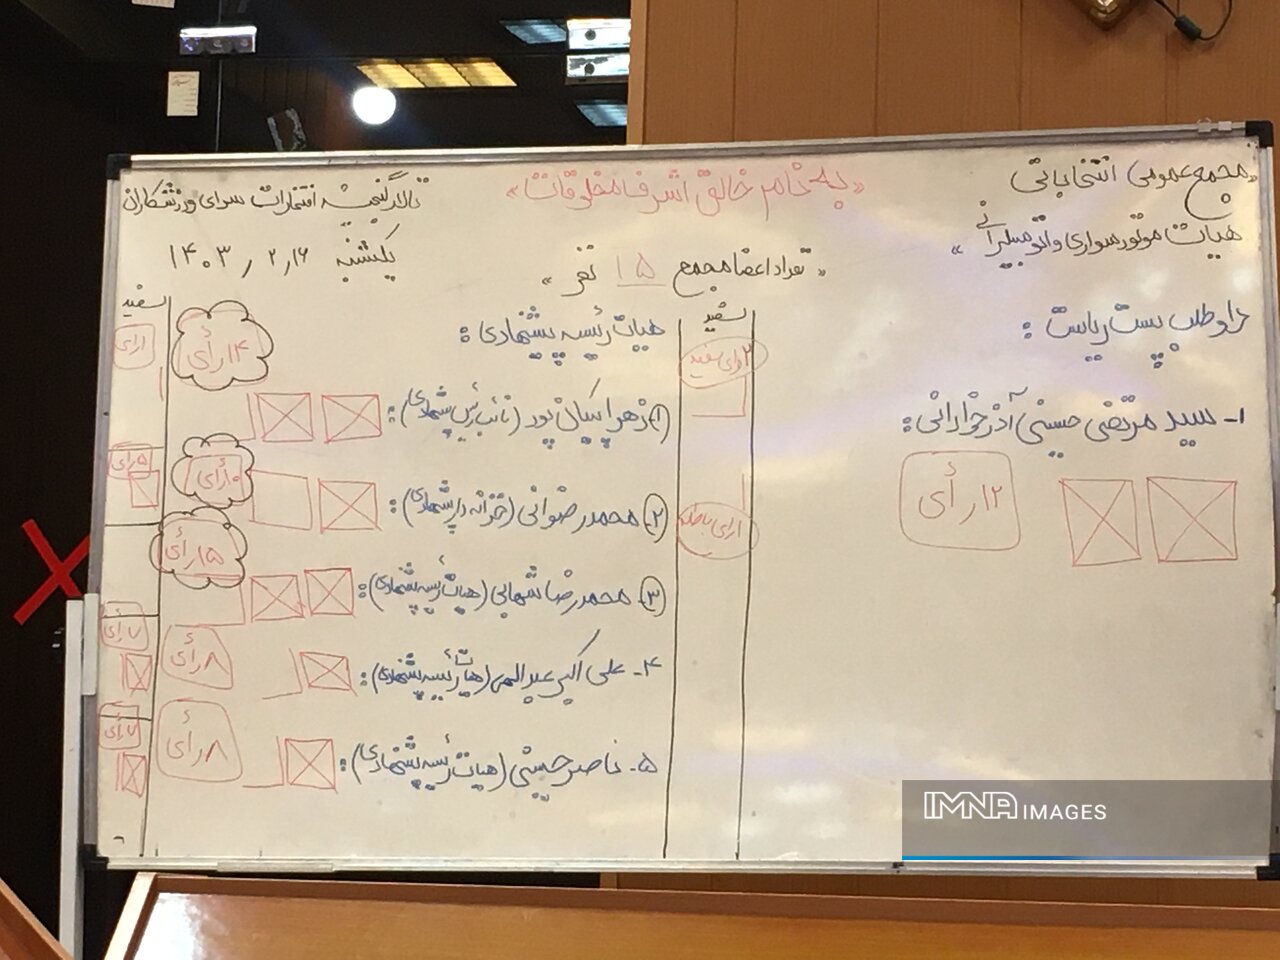 «مجمع عمومی انتخاباتی
هیات موتورسواری و اتومبیلرانی»
«به نام خالق اشرف مخلوقات»
تالار گنجینه افتخارات سرای ورزشکاران
یکشنبه ۱۴۰۳٫۲٫۱۶
«تعداد اعضا مجمع ۱۵ نفر»
داوطلب پست ریاست:
۱- سید مرتضی حسینی آذرخوارانی:
۱۲ رأی
سفید
۲ رای سفید
۱رای باطله
هیات رئیسه پیشنهادی:
۱- زهرا پیکان پور (نائب رئیس پیشنهادی):
۱۴ رأی
۲- محمد رضوانی (خزانه دار پیشنهادی):
۱۰ رأی
۳- محمدرضا شهابی (هیات رئیسه پیشنهادی):
۱۵ رأی
۴- علی اکبر (هیات رئیسه پیشنهادی):
۸ رأی
۵- ناصر حسینی (هیات رئیسه پیشنهادی):
۸ رأی
سفید
۱رای
۵ رای
۷ رأی
۷ رأی
IMNA IMAGES